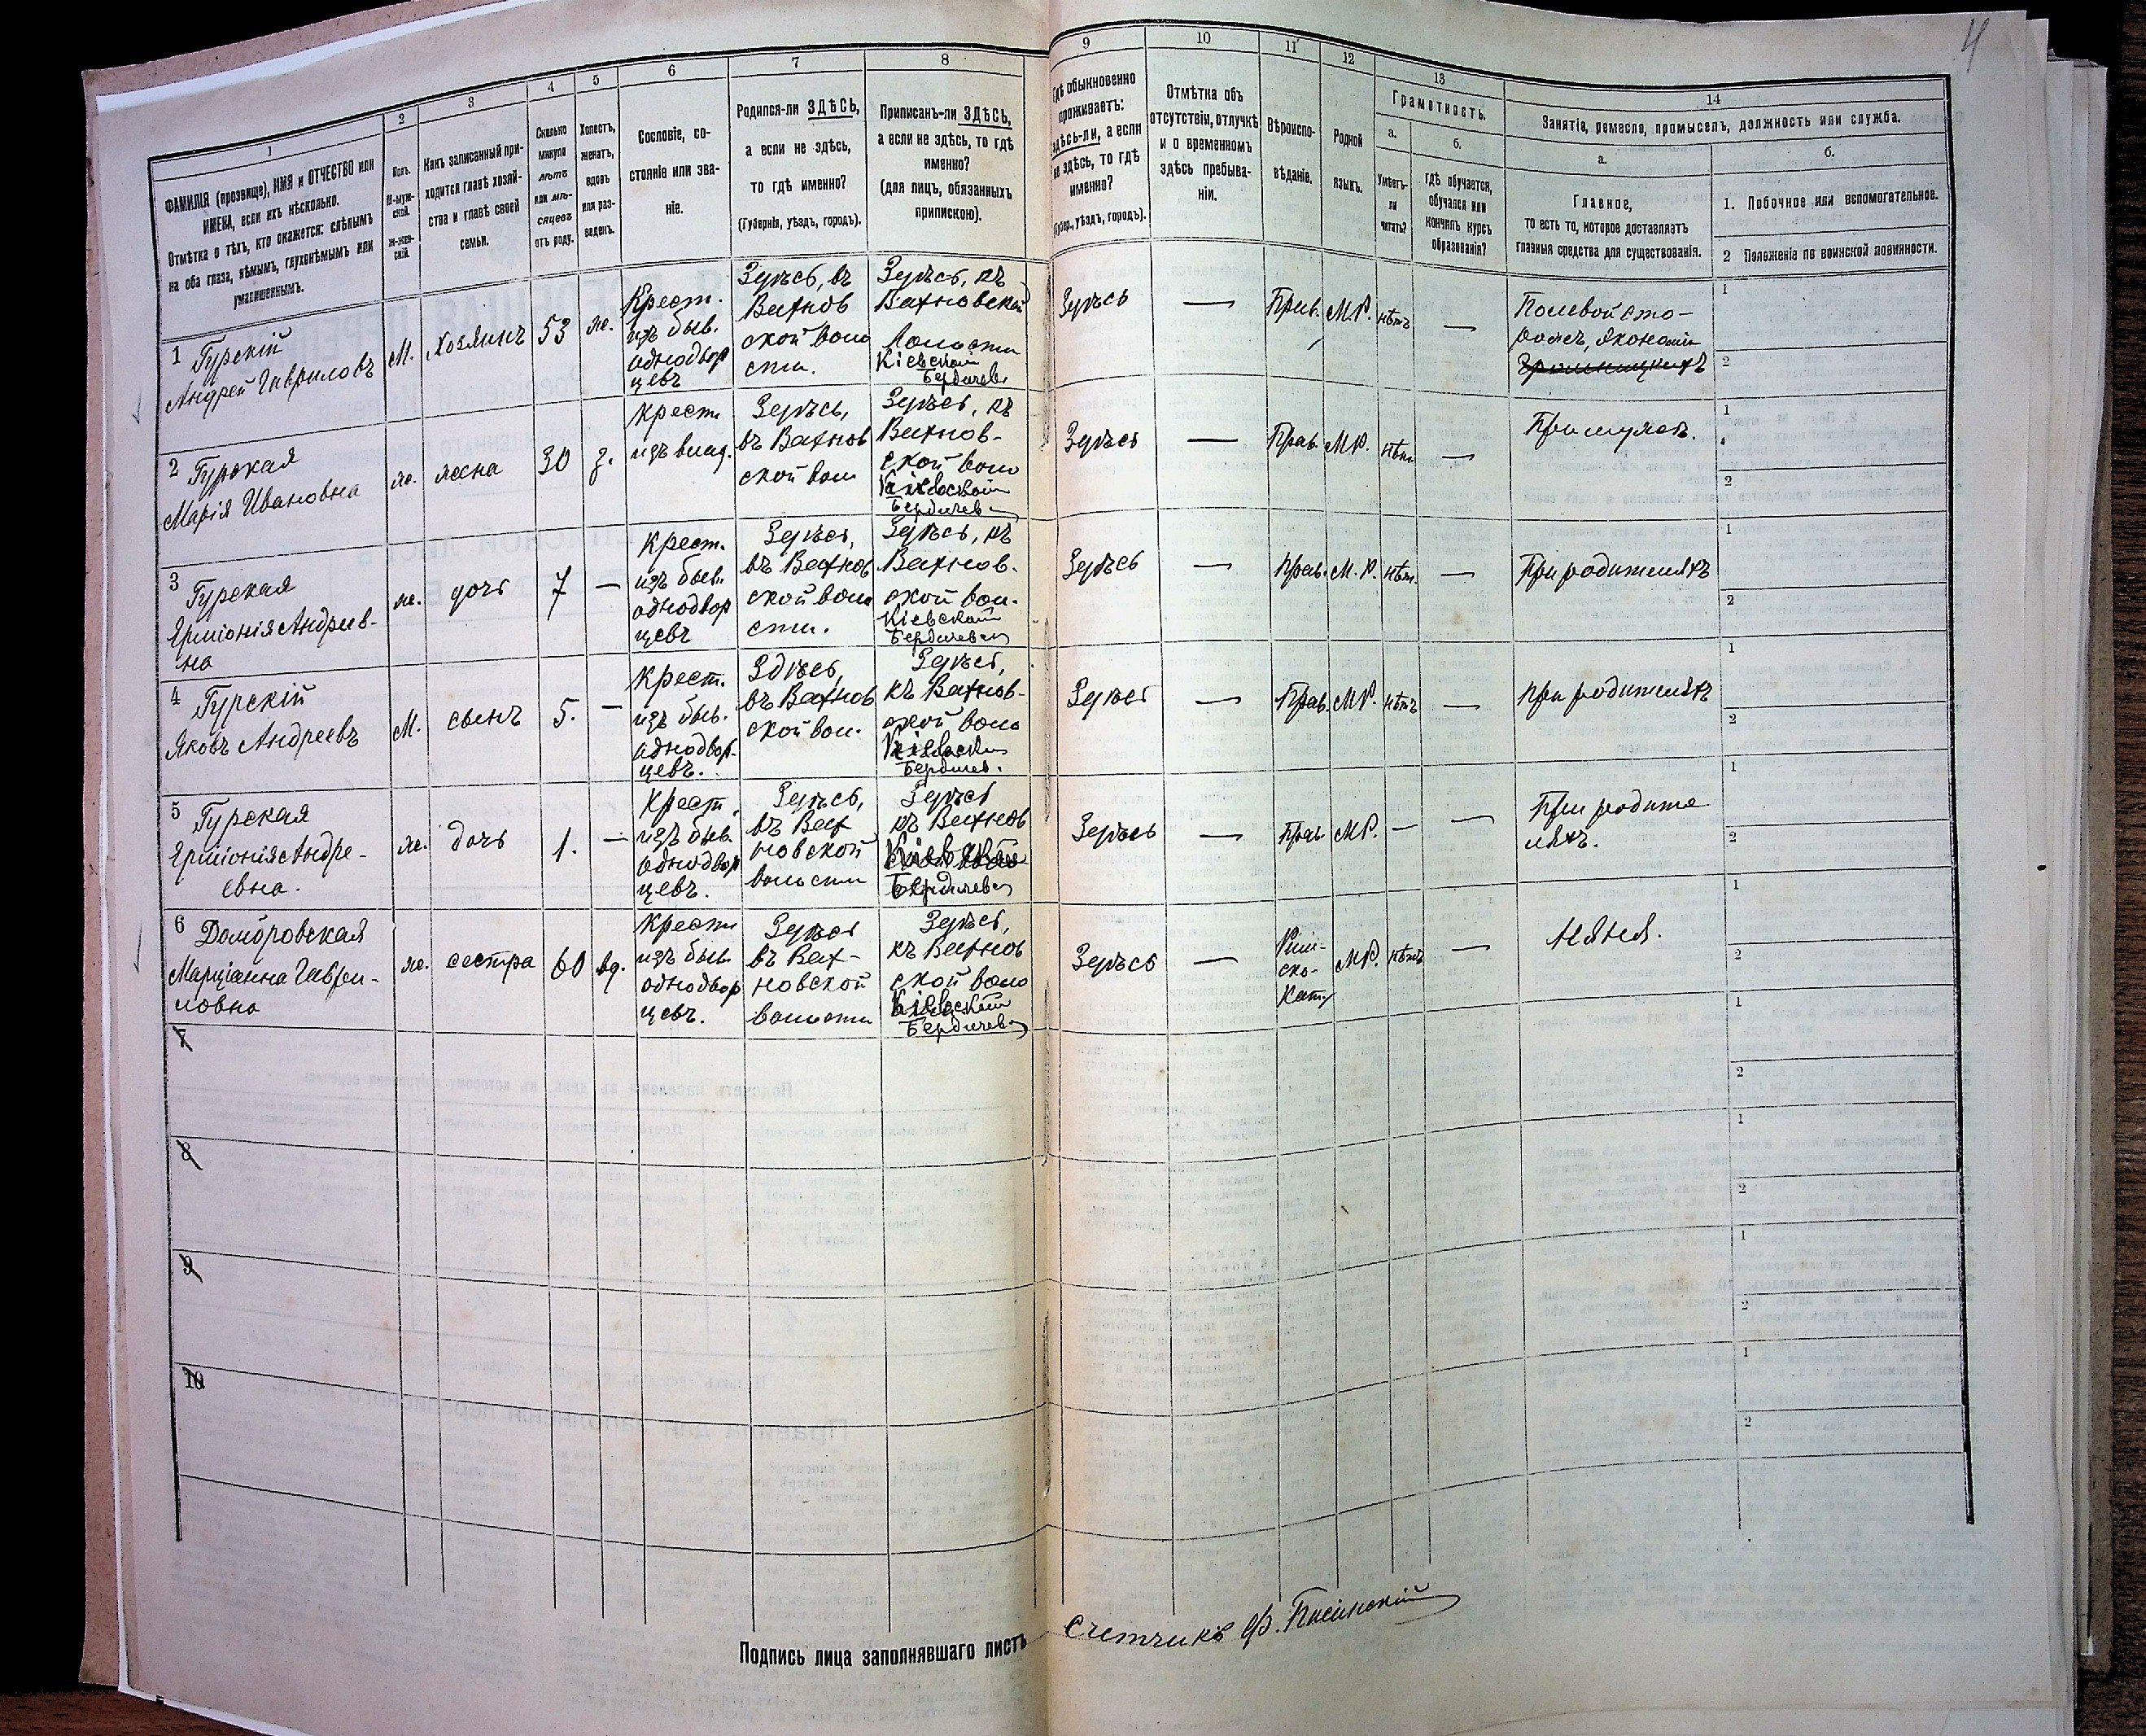 4
1
2
3
4
5
6
7
8
9
10
11
12
13
14
ФАМИЛІЯ (прозвище), ИМЯ и ОТЧЕСТВО или
ИМЕНА, если ихъ нѣсколько.
Отмѣтка о тѣхъ, кто окажется: слѣпымъ
на оба глаза, нѣмымъ, глухонѣмымъ или
умалишеннымъ.
Полъ.
М-муж-
ской.
Ж-жен-
скій.
Какъ записанный при-
ходится главѣ хозяй-
ства и главѣ своей
семьи.
Сколько
минуло
лѣтъ
или мѣ-
сяцевъ
отъ роду.
Холостъ,
женатъ,
вдовъ
или раз-
веденъ.
Сословіе, со-
стояніе или зва-
ніе.
Родился-ли ЗДѢСЬ,
а если не здѣсь,
то гдѣ именно?
(Губернія, уѣздъ, городъ).
Приписанъ-ли ЗДѢСЬ,
а если не здѣсь, то гдѣ
именно?
(для лицъ, обязанныхъ
припискою).
Гдѣ обыкновенно
проживаетъ:
здѣсь-ли, а если
не здѣсь, то гдѣ
именно?
(Губер., уѣздъ, городъ).
Отмѣтка объ
отсутствіи, отлучкѣ
и о временномъ
здѣсь пребыва-
ніи.
Вѣроиспо-
вѣданіе.
Родной
языкъ.
Грамотность.
а.
Умѣетъ-
ли
читать?
б.
гдѣ обучается,
обучался или
кончилъ курсъ
образованія?
Занятіе, ремесло, промыселъ, должность или служба.
а.
Главное,
то есть то, которое доставляетъ
главныя средства для существованія.
б.
1. Побочное или вспомогательное.
2 Положеніе по воинской повинности.
1 Гурскій
Андрей Гавриловъ
М.
Хозяинъ
53
ж.
Крест.
изъ быв.
однодвор
цевъ
Здѣсь, въ
Вахнов
ской воло
сти.
Здѣсь, къ
Вахновской
Волости
Кіевской
Бердичев
Здѣсь
—
Прав.
М.Р.
нѣтъ
—
Полевой сто-
рожъ, экономіи
1
2
2 Гурская
Марія Ивановна
ж.
жена
30
з.
Крест
изъ влад.
Здѣсь,
въ Вахнов
ской вол
Здѣсь, къ
Вахнов-
ской воло
Кіевской
Бердичев
Здѣсь
—
Прав.
М.Р.
нѣт.
—
При мужѣ.
1
2
3 Гурская
Ерміонія Андреев-
на
ж.
дочь
7
—
Крест.
изъ быв.
однодвор
цевъ
Здѣсь,
въ Вахнов
ской воло
сти.
Здѣсь, къ
Вахнов-
ской вол.
Кіевской
Бердичев
Здѣсь
—
Прав.
М.Р.
нѣт.
—
При родителяхъ
1
2
4 Гурскій
Яковъ Андреевъ
М.
сынъ
5.
—
Крест.
изъ быв.
однодвор-
цевъ.
Здѣсь,
въ Вахнов
ской вол.
Здѣсь,
къ Вахнов-
ской воло
Кіевской
Бердичев.
Здѣсь
—
Прав.
М.Р.
нѣтъ
—
При родителяхъ
1
2
5 Гурская
Ерміонія Андре-
евна.
ж.
дочь
1.
—
Крест.
изъ быв.
однодвор
цевъ.
Здѣсь,
въ Вах
новской
волости
Здѣсь
къ Вахнов
Кіевской
Бердичев
Здѣсь
—
Прав.
М.Р.
—
—
При родите
ляхъ.
1
2
6 Домбровская
Марціанна Гаври-
ловна
ж.
сестра
60
вд.
Крест
изъ быв.
однодвор
цевъ.
Здѣсь
въ Вах-
новской
волости
Здѣсь,
къ Вахнов
ской воло
Кіевской
Бердичев
Здѣсь
—
Рим-
ско-
Кат.
М.Р.
нѣтъ
—
Няня.
1
2
7
1
2
8
1
2
9
1
2
10
1
2
Подпись лица заполнявшаго листъ
Счетчикъ Ф.